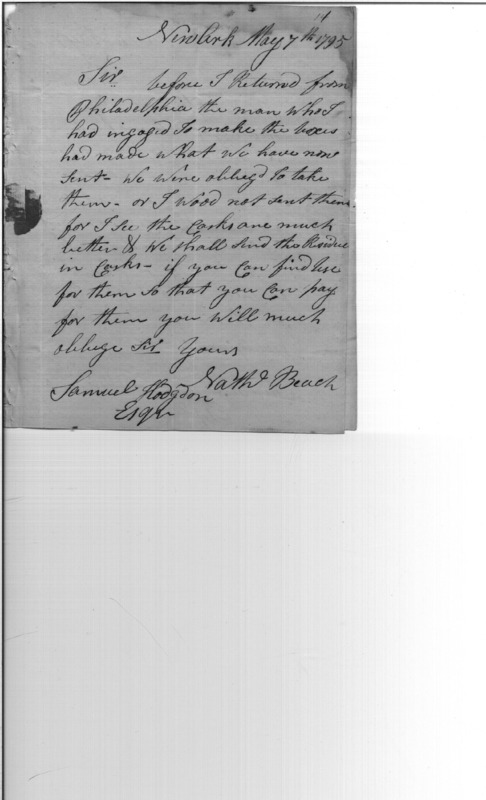 Newark May 7th 1795
Sir before I Returned from
Philadelphia the man who I
had ingaged to make the boxes
had made what we have now
sent - we were obbleg'd to take
them - or I wood not sent them
for I see the Casks are much
better & We shall send the Residue
in Casks - if you Can find Use
for them so that you Can pay
for them you will much
obbege Sir Yours
Nathl Beach
Samuel Hodgdon
Esqr